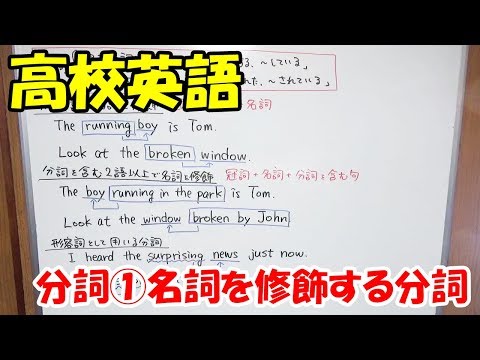 高校英語
る、〜している
た、〜されている」
名詞
The running boy is Tom.
Look at the broken window.
分詞を含む2語以上で名詞を修飾 冠詞+名詞+分詞を含む句
The boy running in the park is Tom.
Look at the window broken by John.
形容詞として用いる分詞
I heard the surprising news just now.
分詞①名詞を修飾する分詞